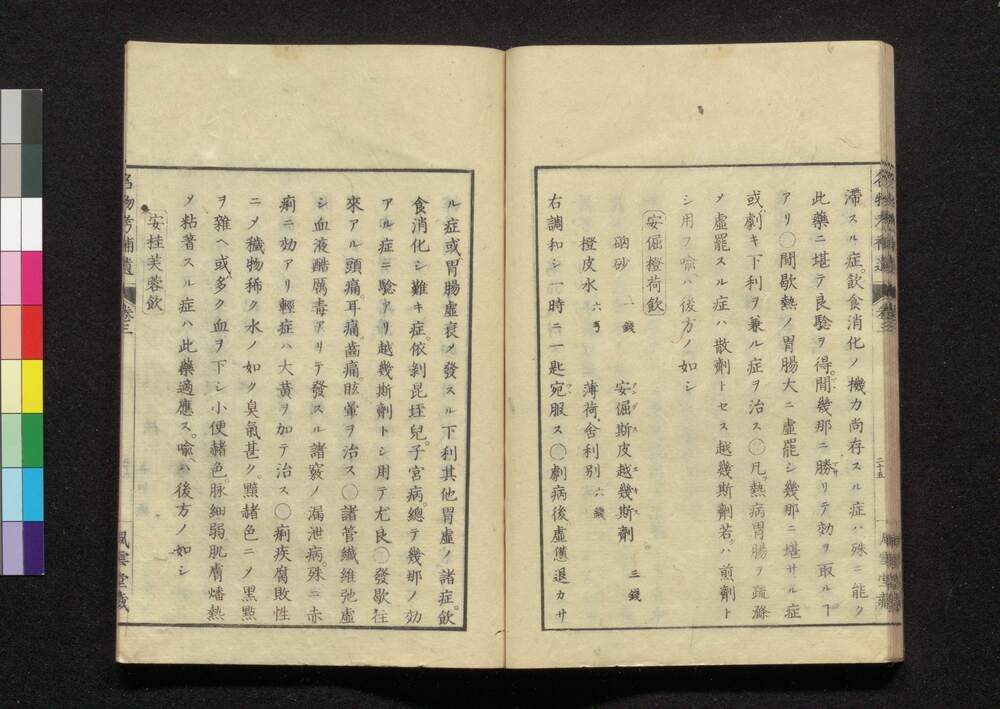 滞スル症。飲食消化ノ機力尚存スル症ハ殊ニ能ク
此藥ニ堪テ良驗ヲ得。間幾那ニ勝リテ効ヲ取ル丁
アリ〇間歇熱ノ胃腸大ニ虚罷シ幾那ニ堪サル症
或ハ劇キ下利ヲ兼ル症ヲ治ス〇凡ソ熱病胃腸ヲ疏滌
メ虚罷スル症ハ散劑トセス越幾斯劑若クハ煎劑ト
シ用フ喩ヘハ後方ノ如シ
安倔橙荷飲
硇砂 一錢 安倔斯皮越幾斯劑 三錢
橙皮水 六弓 薄荷舎利別 六錢
右調和シ一時ニ一匙宛服ス〇劇病後虚憊退カサ
二十五
名物考補遺 卷三 風雲堂藏
ル症或ハ胃腸虚衰メ發スル下利其他胃虚ノ諸症。飲
食消化シ難キ症。依剝昆垤兒。子宮病。總テ幾那ノ効
アル症ニ驗アリ越幾斯劑トシ用テ尤良〇發歇往
來アル頭痛。耳痛。齒痛眩暈ヲ治ス〇諸管纖維弛虚
シ血液酷厲毒アリテ發スル諸竅ノ漏泄病。殊ニ赤
痢ニ効アリ輕症ハ大黄ヲ加テ治ス〇痢疾腐敗性
ニメ穢物稀ク水ノ如ク臭氣甚ク。黯赭色ニメ黒㸃
ヲ雜ヘ或ハ多ク血ヲ下シ小便赭色。脉細弱。肌膚燔熱
メ粘著スル症ハ此藥適應ス。喩ヘハ後方ノ如シ
安桂芙蓉飲
名物考補遺 卷三 風雲堂藏